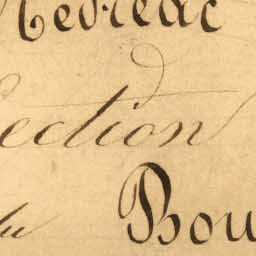 Medréac
ection
du
Bou